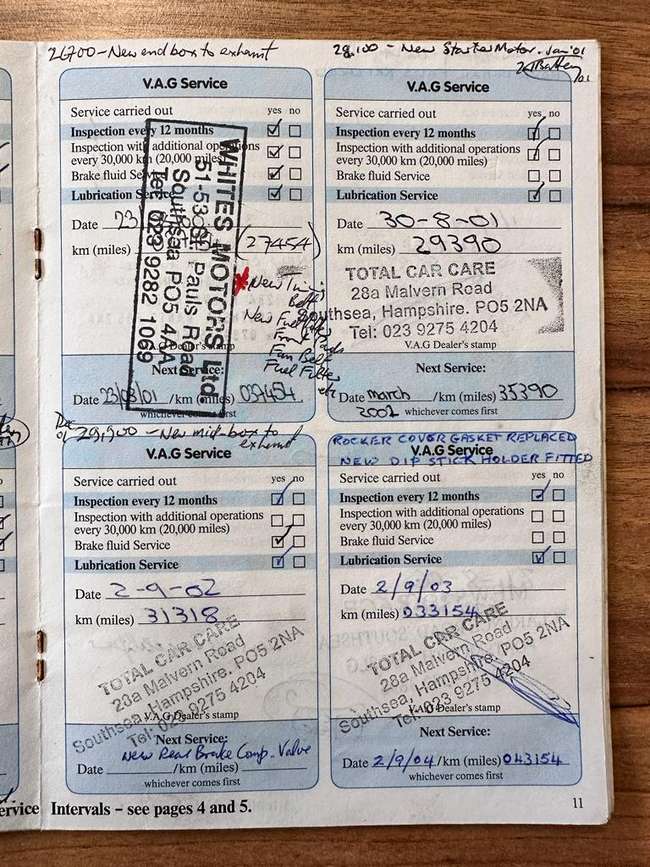 26700 - New end box to exhaust
V.A.G Service
Service carried out yes no
Inspection every 12 months
Inspection with additional operations
every 30,000 km (20,000 miles)
Brake fluid Service
Lubrication Service
Date 23
km (miles) (27454)
WHITES MOTORS Ltd
51-53 St Pauls Road
Southsea PO5 4AA
Tel: 023 9282 1069
New
Belt
New
Fan Belt
Fuel Filter
etc
V.A.G Dealer's stamp
Next Service:
Date 23/03/01 /km (miles) 037454
whichever comes first
28,100 - New Starter Motor - Jan '01
Battery
01
V.A.G Service
Service carried out yes no
Inspection every 12 months
Inspection with additional operations
every 30,000 km (20,000 miles)
Brake fluid Service
Lubrication Service
Date 30-8-01
km (miles) 29390
TOTAL CAR CARE
28a Malvern Road
Southsea, Hampshire. PO5 2NA
Tel: 023 9275 4204
V.A.G Dealer's stamp
Next Service:
Date march /km (miles) 35390
2002 whichever comes first
Dec 01 29,900 - New mid-box to
exhaust
V.A.G Service
Service carried out yes no
Inspection every 12 months
Inspection with additional operations
every 30,000 km (20,000 miles)
Brake fluid Service
Lubrication Service
Date 2-9-02
km (miles) 31318
TOTAL CAR CARE
28a Malvern Road
Southsea, Hampshire. PO5 2NA
Tel: 023 9275 4204
V.A.G Dealer's stamp
Next Service:
New Rear Brake Comp. Valve
Date /km (miles)
whichever comes first
ROCKER COVER GASKET REPLACED
V.A.G Service
NEW DIP STICK HOLDER FITTED
Service carried out yes no
Inspection every 12 months
Inspection with additional operations
every 30,000 km (20,000 miles)
Brake fluid Service
Lubrication Service
Date 2/9/03
km (miles) 033154
TOTAL CAR CARE
28a Malvern Road
Southsea, Hampshire. PO5 2NA
Tel: 023 9275 4204
V.A.G Dealer's stamp
Next Service:
Date 2/9/04 /km (miles) 043154
whichever comes first
ervice Intervals – see pages 4 and 5.
11